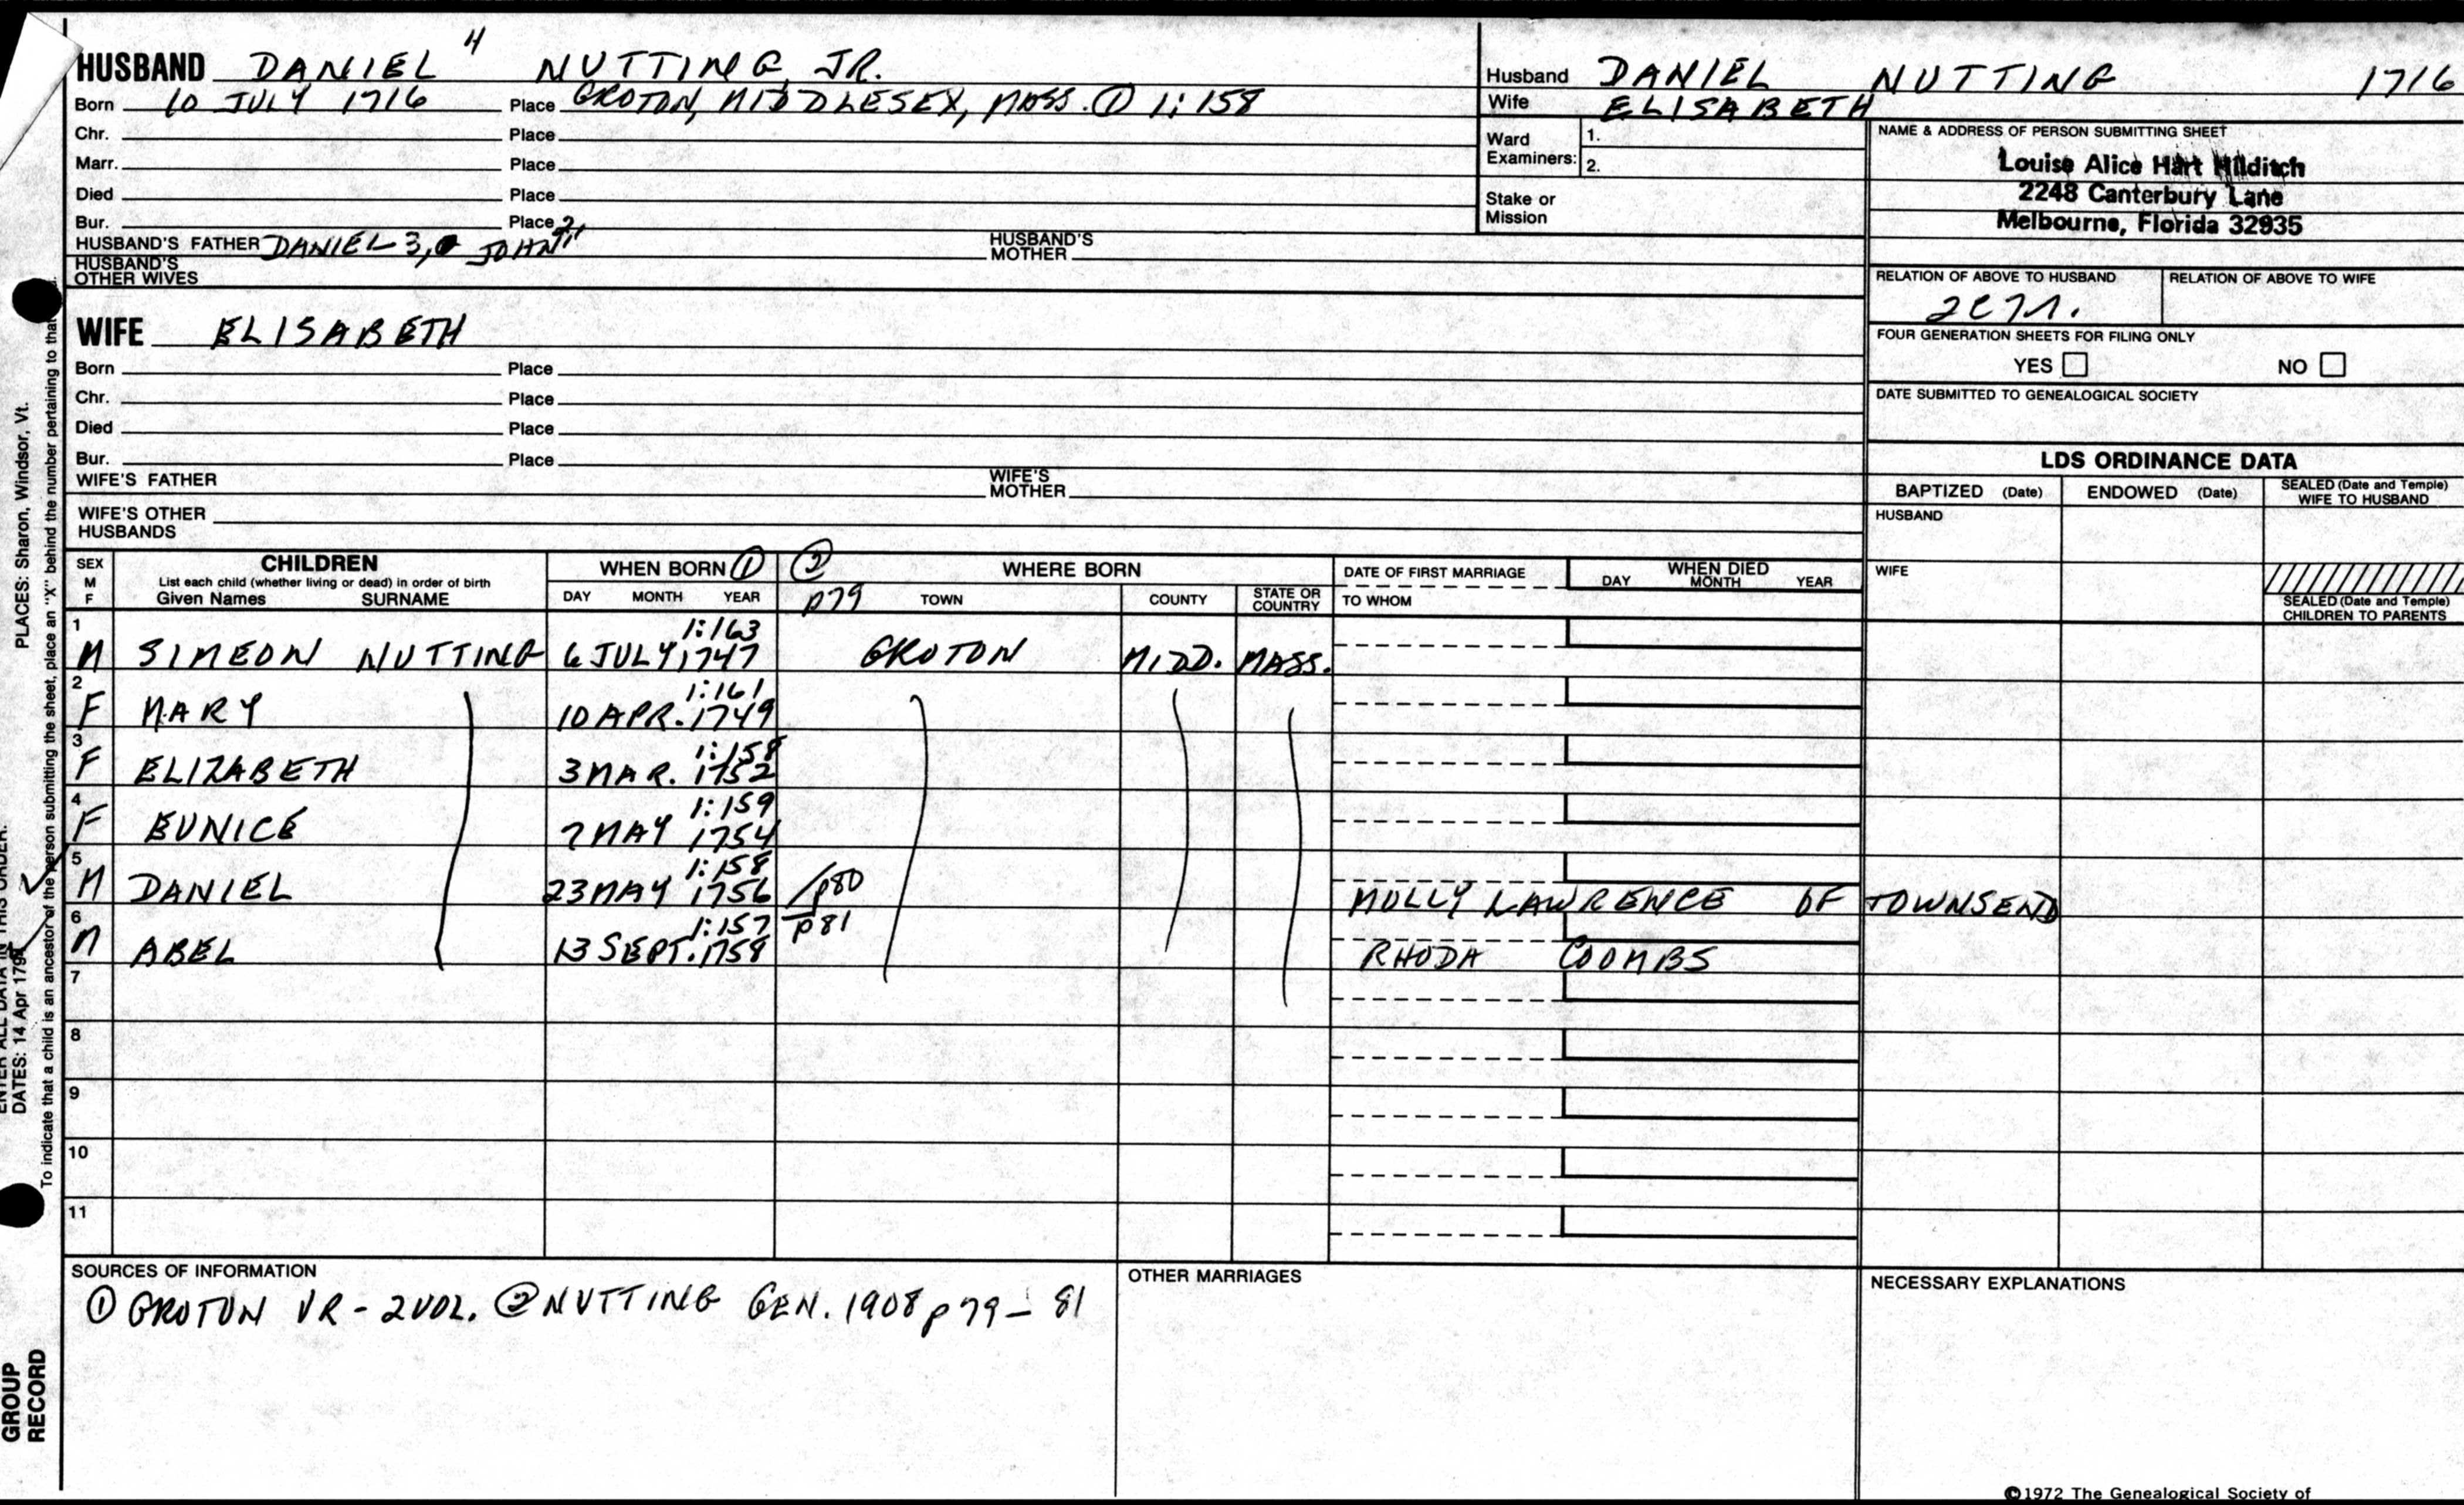 HUSBAND DANIEL 4 NUTTING, JR.
Born 10 JULY 1716 Place GROTON, MIDDLESEX, MASS. ① 1:158
Chr. Place
Marr. Place
Died Place
Bur. Place
HUSBAND'S FATHER DANIEL 3, JOHN 2 HUSBAND'S MOTHER
HUSBAND'S OTHER WIVES
Husband DANIEL NUTTING 1716
Wife ELISABETH
Ward Examiners: 1.
2.
Stake or Mission
NAME & ADDRESS OF PERSON SUBMITTING SHEET
Louise Alice Hart Hilditch
2248 Canterbury Lane
Melbourne, Florida 32935
RELATION OF ABOVE TO HUSBAND RELATION OF ABOVE TO WIFE
FOUR GENERATION SHEETS FOR FILING ONLY
YES NO
DATE SUBMITTED TO GENEALOGICAL SOCIETY
WIFE ELISABETH
Born Place
Chr. Place
Died Place
Bur. Place
WIFE'S FATHER WIFE'S MOTHER
WIFE'S OTHER HUSBANDS
LDS ORDINANCE DATA
BAPTIZED (Date) ENDOWED (Date) SEALED (Date and Temple) WIFE TO HUSBAND
HUSBAND
WIFE
SEALED (Date and Temple) CHILDREN TO PARENTS
SEX M F CHILDREN WHEN BORN ① ② WHERE BORN DATE OF FIRST MARRIAGE WHEN DIED
List each child (whether living or dead) in order of birth
Given Names SURNAME DAY MONTH YEAR p79 TOWN COUNTY STATE OR COUNTRY TO WHOM DAY MONTH YEAR
1 1:163
M SIMEON NUTTING 6 JULY 1747 GROTON MIDD. MASS.
2 1:161
F MARY 10 APR. 1749
3 1:158
F ELIZABETH 3 MAR. 1752
4 1:159
F EUNICE 7 MAY 1754
5 1:158
M DANIEL 23 MAY 1756 p80 MOLLY LAWRENCE OF TOWNSEND
6 1:157 p81
M ABEL 13 SEPT. 1758 RHODA COOMBS
7
8
9
10
11
SOURCES OF INFORMATION
① GROTON VR - 2 VOL. ② NUTTING GEN. 1908 p 79 - 81
OTHER MARRIAGES
NECESSARY EXPLANATIONS
©1972 The Genealogical Society of
PLACES: Sharon, Windsor, Vt.
To indicate that a child is an ancestor of the person submitting the sheet, place an "X" behind the number pertaining to that
ENTER ALL DATA IN THIS ORDER:
DATES: 14 Apr 179
GROUP
RECORD